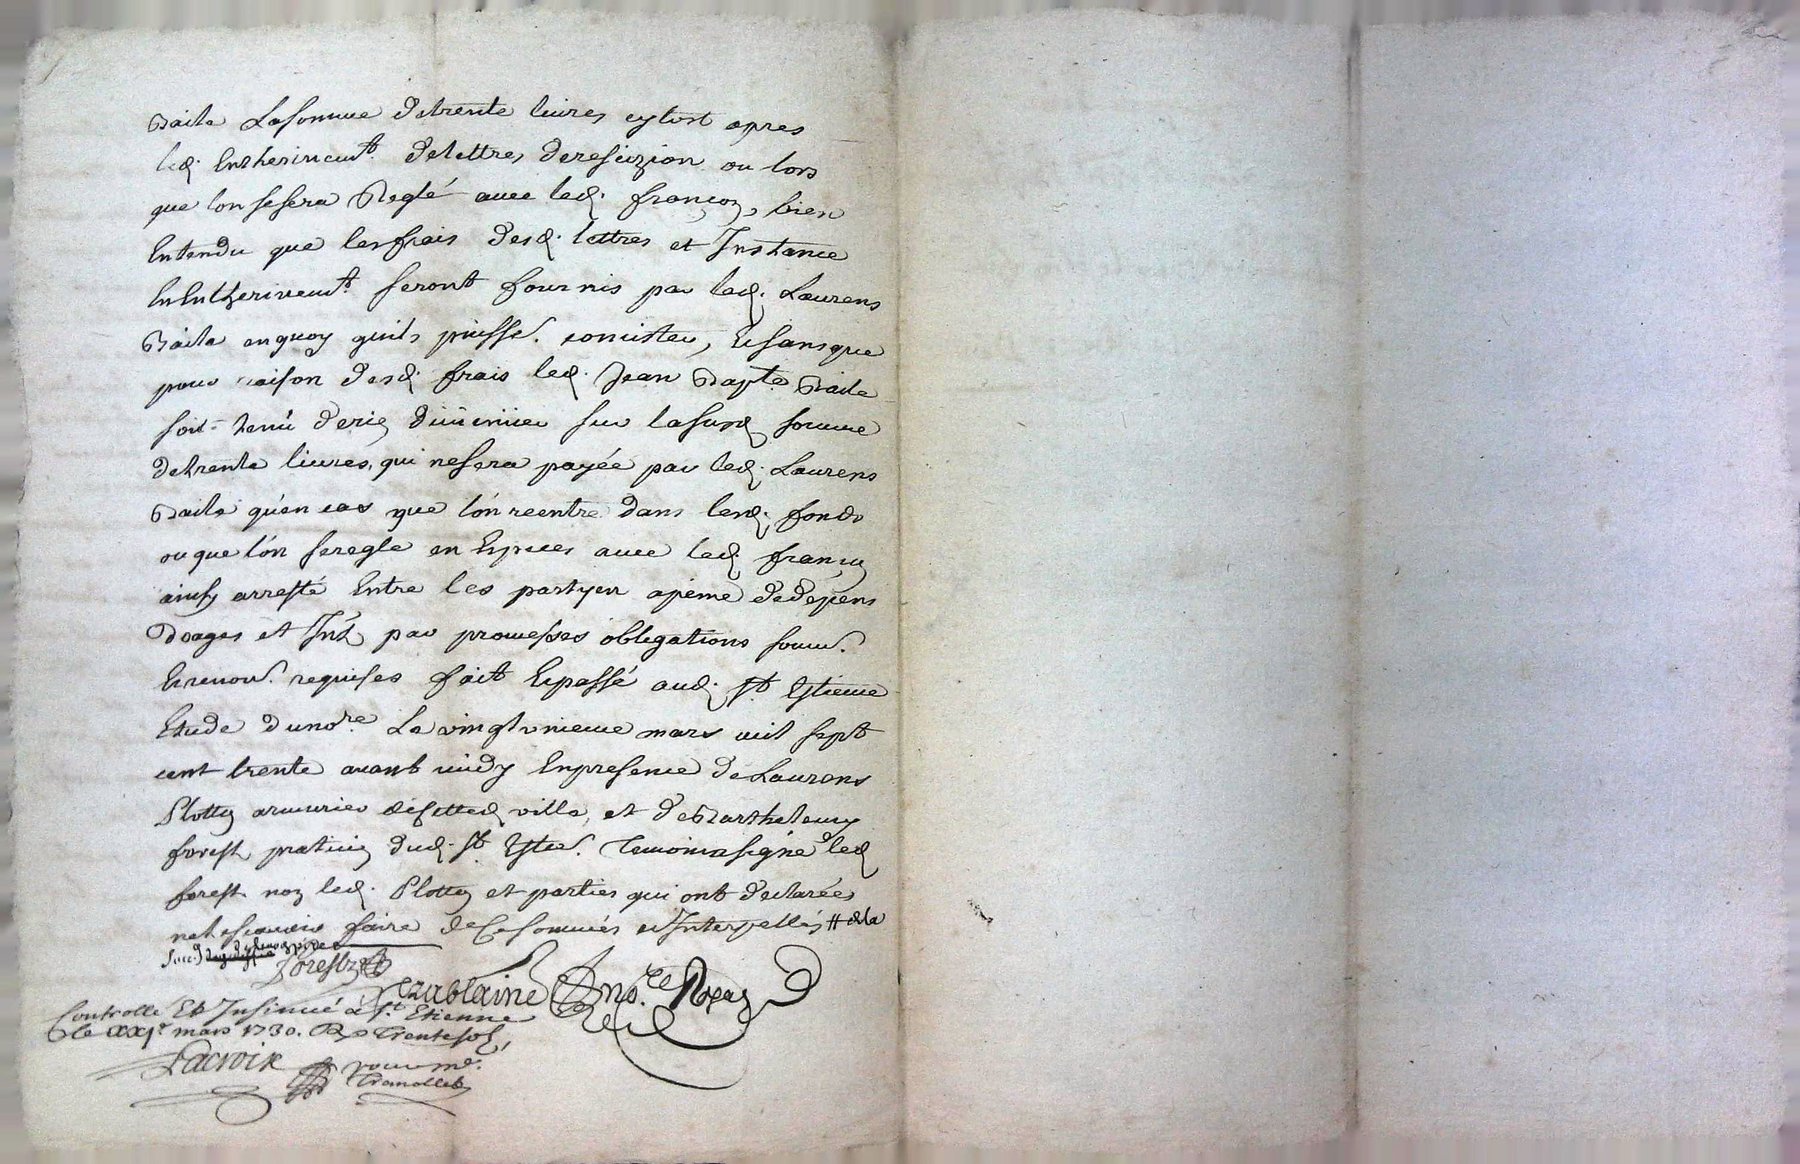 Baile La somme de trente livres sytost apres
led. Entherinemt. de lettres de rescizion ou lors
que lon se sera Reglé avec led. françois, bien
Entendu que les frais desd. lettres et Instance
En Entherinemt. seront fournis par led. Laurens
Baile en quoy quils puisse. concister, Et sans que
pour raison desd. frais led. Jean Bapte. Baile
soit tenû de rien diminuer sur la susd. somme
de trente livres, qui ne sera payée par led. Laurens
Baile qu'en cas que l'on reentre dans lesd. fonds
ou que l'on se regle en Especes avec led. françois
ainsy arresté Entre les partyes a peine de depens
doages et Int. par promesses obligations soum.
Et renon. requises fait Et passé aud. St. Estienne
Etude du nore. Le vingtunieme mars mil sept
cent trente avant midy En presence de Laurens
Plotton armurier de cette d. ville, et de Barthelemy
forest praticien dud. St. Este. Temoins signé led.
forest non led. Plotton et parties qui ont declarées
ne le scavoir faire de ce sommées et Interpellés # de la
Forest
Chablaine nore. Royal
Controllé Et Insinué a St. Etienne
le xxje. mars 1730. R. trente sols,
Lacroix
pour mr.
Tranollet